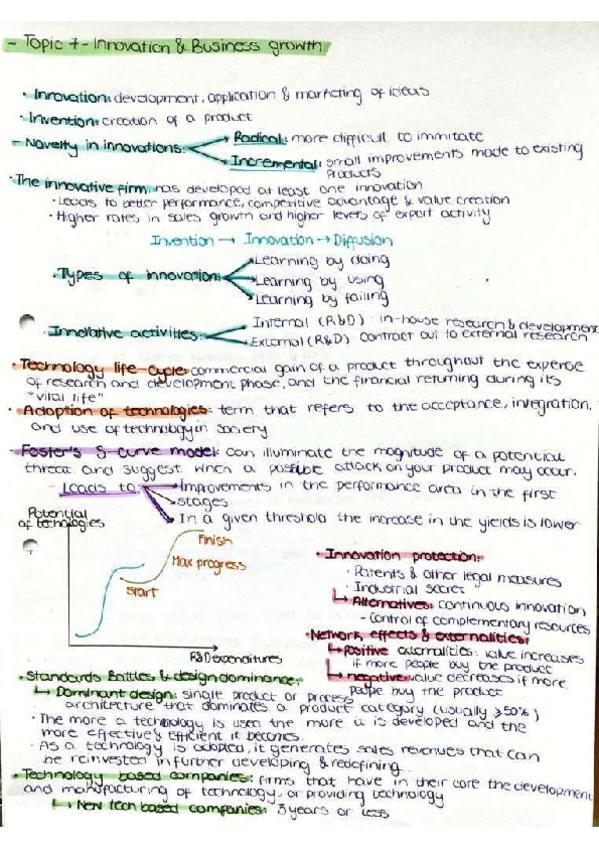 - Topic 7 - Innovation & Business growth
· Innovation: development, application & marketing of ideas
· Invention: creation of a product
- Novelty in innovations:
Radical: more difficult to immitate
Incremental: small improvements made to existing
products
· The innovative firm: has developed at least one innovation
· Leads to better performance, competitive advantage & value creation
· Higher rates in sales growth and higher levels of export activity
Invention → Innovation → Diffusion
· Types of innovation:
Learning by doing
Learning by using
Learning by failing
· Innovative activities:
Internal (R&D): in-house research & development
External (R&D) contract out to external research
· Technology life-cycle: commercial gain of a product throughout the expense
of research and development phase, and the financial returning during its
"vital life"
· Adoption of technologies: term that refers to the acceptance, integration,
and use of technology in society
· Foster's S-curve model: can illuminate the magnitude of a potential
threat and suggest when a possible attack on your product may occur.
- Leads to:
Improvements in the performance area in the first
stages
In a given threshold the increase in the yields is lower
Potential
of technologies
Finish
Max progress
Start
R&D expenditures
· Innovation protection:
· Patents & other legal measures
· Industrial secret
↳ Alternatives: continuous innovation
- Control of complementary resources
· Network effects & externalities:
↳ positive externalities: value increases
if more people buy the product
↳ negative: value decreases if more
people buy the product
· Standards Battles & design dominance:
↳ Dominant design: single product or process
architecture that dominates a product category (usually ≥50%)
· The more a technology is used the more it is developed and the
more effective & efficient it becomes.
· As a technology is adopted, it generates sales revenues that can
be reinvested in further developing & redefining.
· Technology based companies: firms that have in their core the development
and manufacturing of technology, or providing technology
↳ New tech based companies: 3 years or less